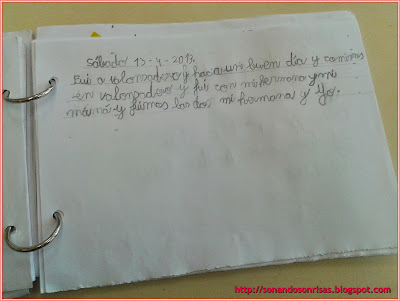 Sábado 13-4-2013.
Fui a valonsadero y hacia un buen día y comimos
en valonsadero y fui con mi hermana y mi
mamá y fuimos los dos mi hermana y yo.
http://sonandosonrisas.blogspot.com